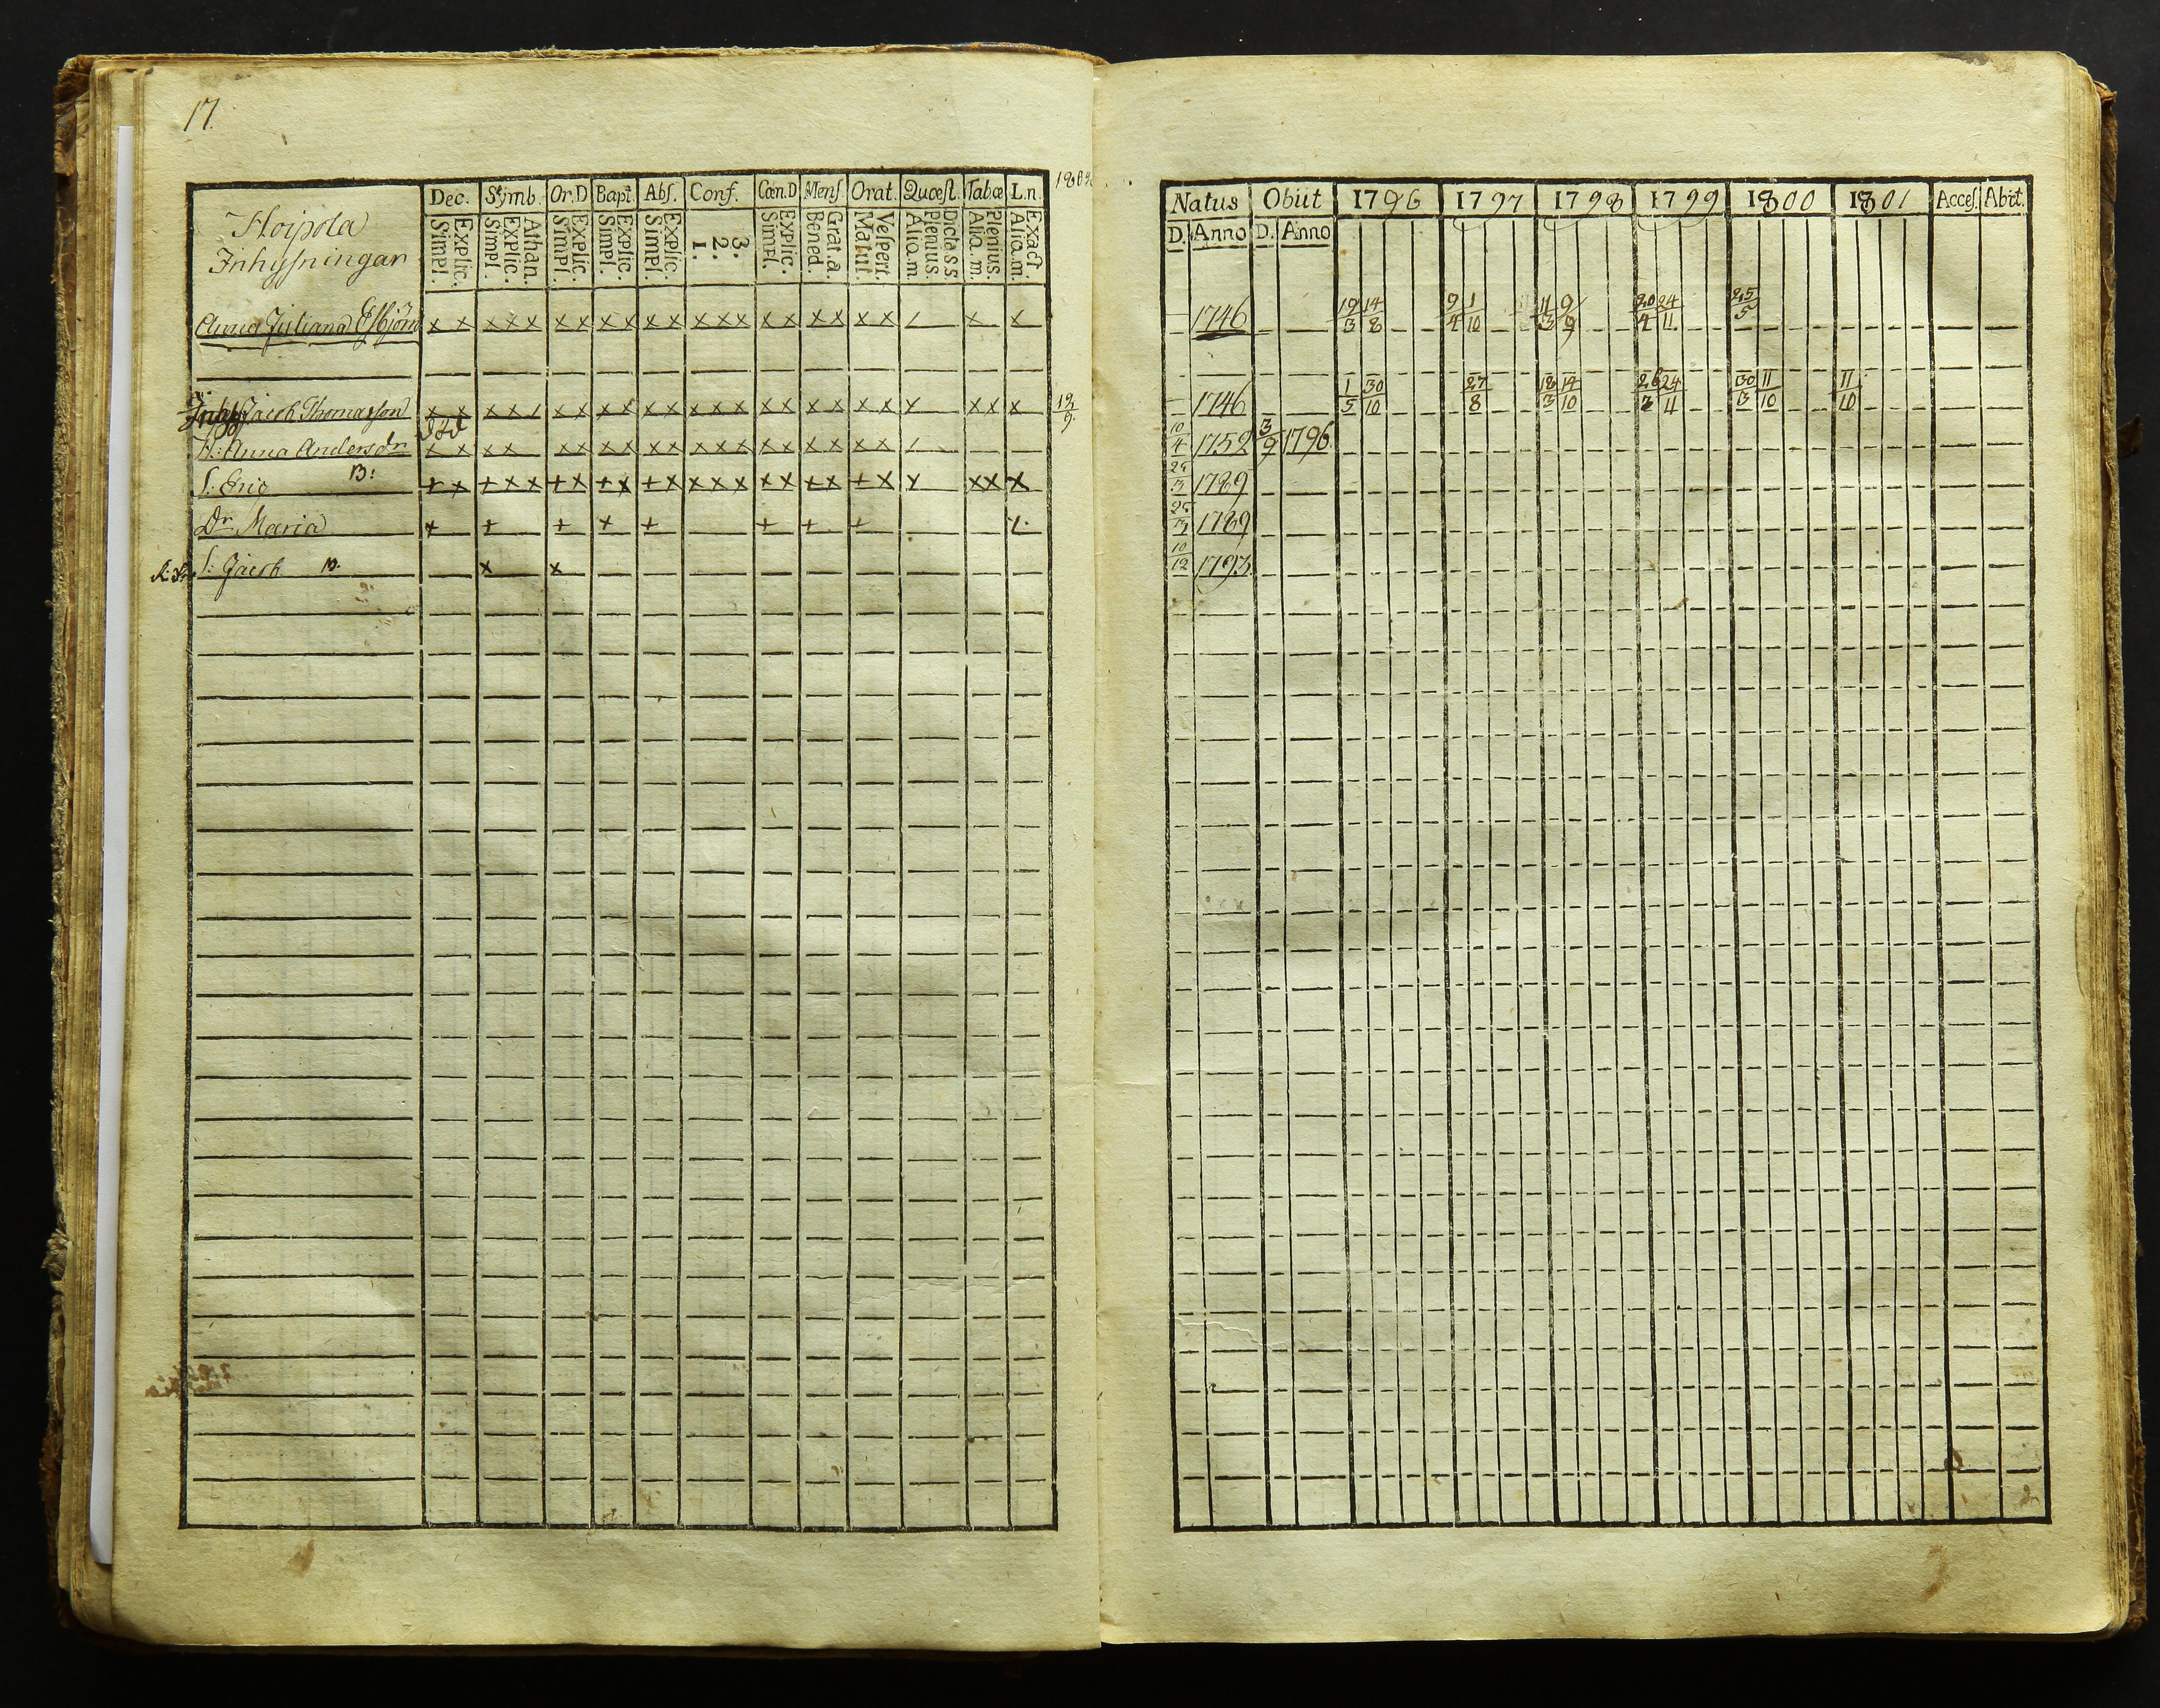 17.
Dec. Simb. Or.D Bapt Abſ. Conf. Cœn.D Menſ Orat. Quœſt. Tabœ L.n.
Explic. Simpl. Athan. Explic. Simpl. Explic. Simpl. Explic. Simpl. Explic. Simpl. 3. 2. 1. Explic. Simpl. Grat.a. Bened. Veſpert. Matut. Dicta s.s. Plenius. Aliq.m. Plenius. Aliq.m. Exact. Aliq.m.
Inhysningar
Anna Juliana x x x x x x x x x x x x x x x x x x x x / x x
Jacob Thomasson x x x x / x x x x x x x x x x x x x x x x x x x 12/9
död
H: Anna Andersdr x x x x x x x x x x x x x x x x x x x x /
S: Eric 13: + x + x x + x + x + x x x x x x + x + x x x x x
Dr Maria + + + + + + + +
S: Jacob 10. x x
Natus Obiit 1796 1797 1798 1799 1800 1801 Acceſ. Abit.
D. Anno D. Anno
1746 19/3 14/8 9/4 1/10 11/3 9/9 20/4 24/11 25/5
1746 1/5 30/10 27/8 18/3 14/10 24/11 30/3 11/10 11/10
10/4 1752 3/9 1796.
1789
1789
10/12 1793.